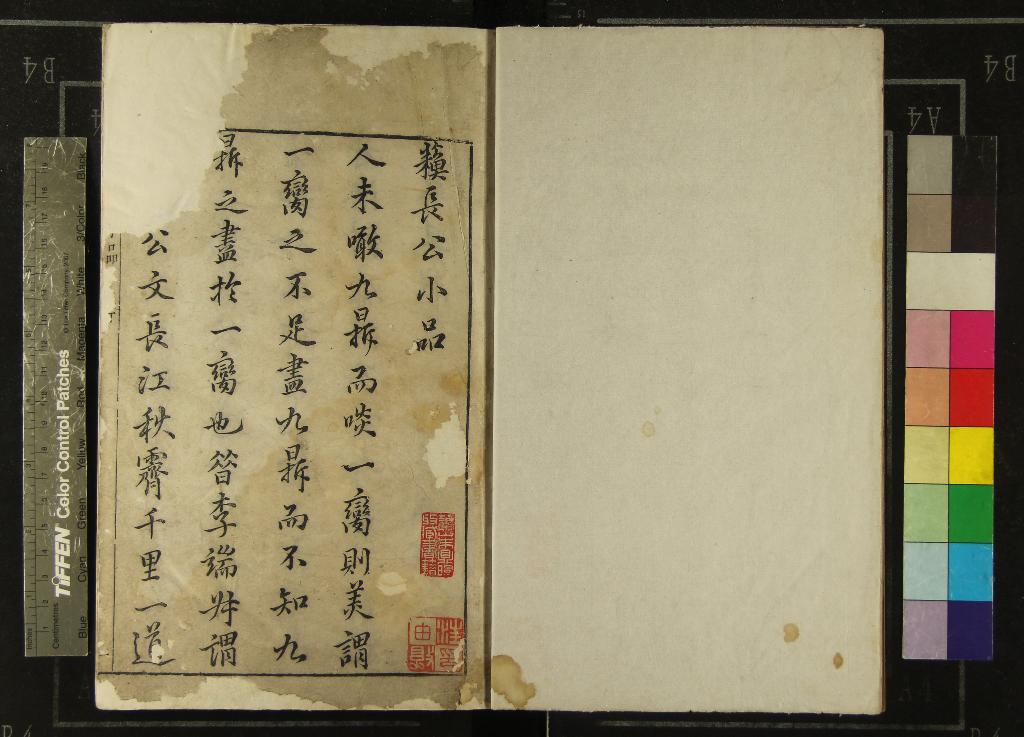 蘓長公小品
人未噉九鼎而啖一臠則美謂
一臠之不足盡九鼎而不知九
鼎之盡於一臠也昔李端叔謂
公文長江秋霽千里一道
TIFFEN Color Control Patches
© The Tiffen Company, 2007
Inches
Centimetres
Blue Cyan Green Yellow Red Magenta White 3/Color Black
B4
B4
A4